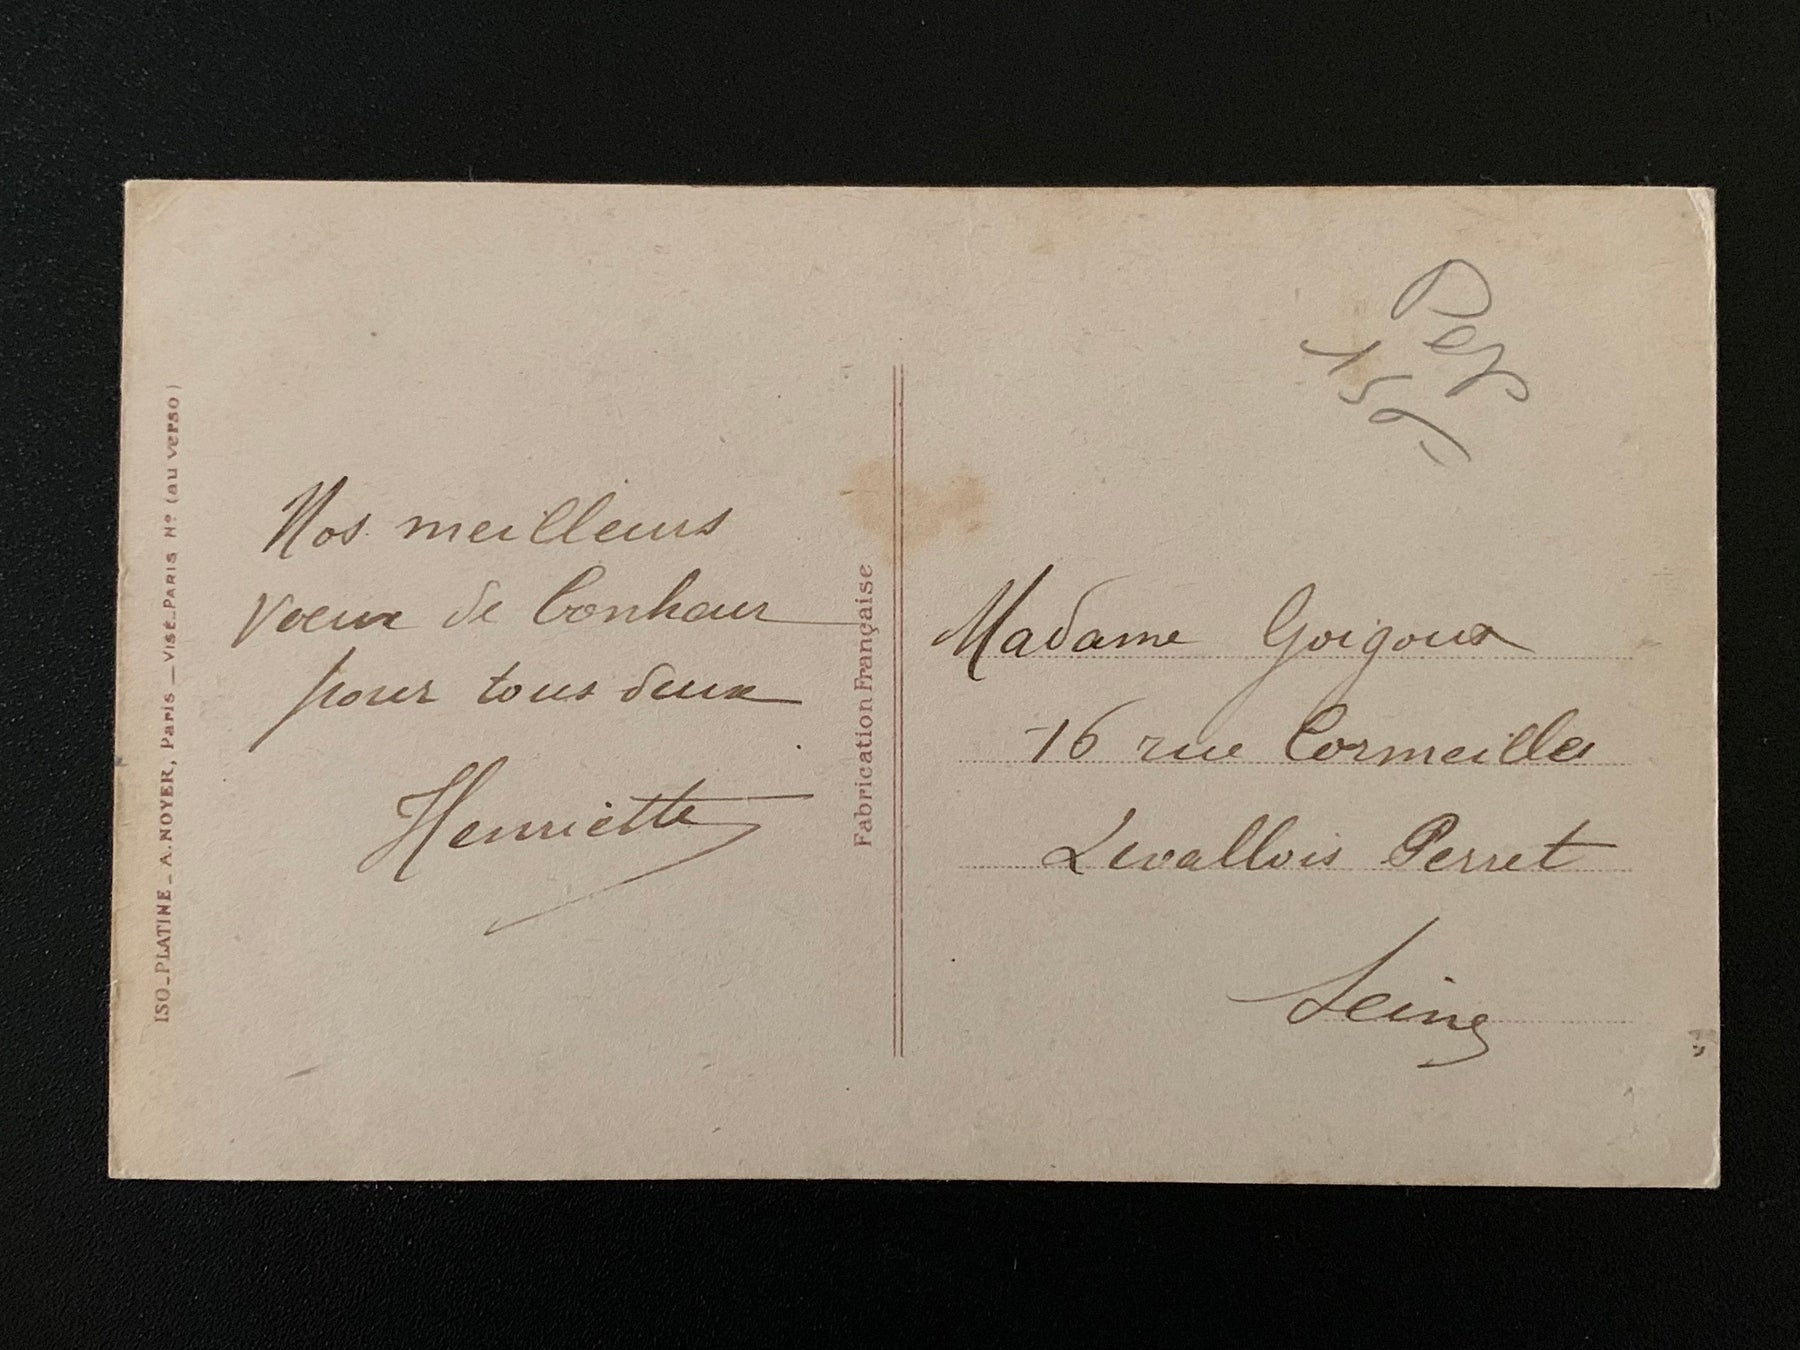 ISO_PLATINE _ A. NOYER, Paris _ VISÉ_PARIS Nº (au verso)
Nos meilleurs
vœux de bonheur
pour tous deux
Henriette
Fabrication Française
15
Madame Goigoux
16 rue Cormeilles
Levallois Perret
Seine